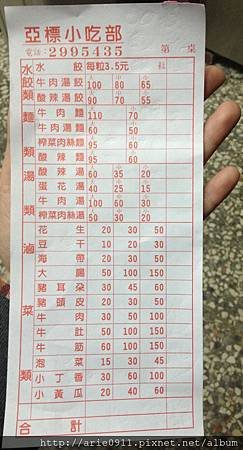 亞標小吃部
電話:2995435 第 桌
水餃類
水餃 每粒3.5元 粒
牛肉湯餃 大100 中80 小65
酸辣湯餃 大90 中70 小55
麵類
牛肉麵 大110 小70
牛肉湯麵 大60 小50
榨菜肉絲麵 大95 小60
酸辣麵 大95 小60
湯類
酸辣湯 大60 中35 小20
蛋花湯 大40 中25 小15
牛肉湯 大100 中60 小30
榨菜肉絲湯 大50 中30 小20
滷菜類
花生 20 30 50
豆干 10 20 30
海帶 20 30 50
大腸 50 100 150
豬耳朵 30 45 60
豬頭皮 20 30 50
牛肉 30 50 100
牛肚 50 100 150
牛筋 60 100 150
泡菜 15 30 45
小丁香 30 60 100
小黃瓜 20 40 60
合計
http://arie0911.pixnet.net/album